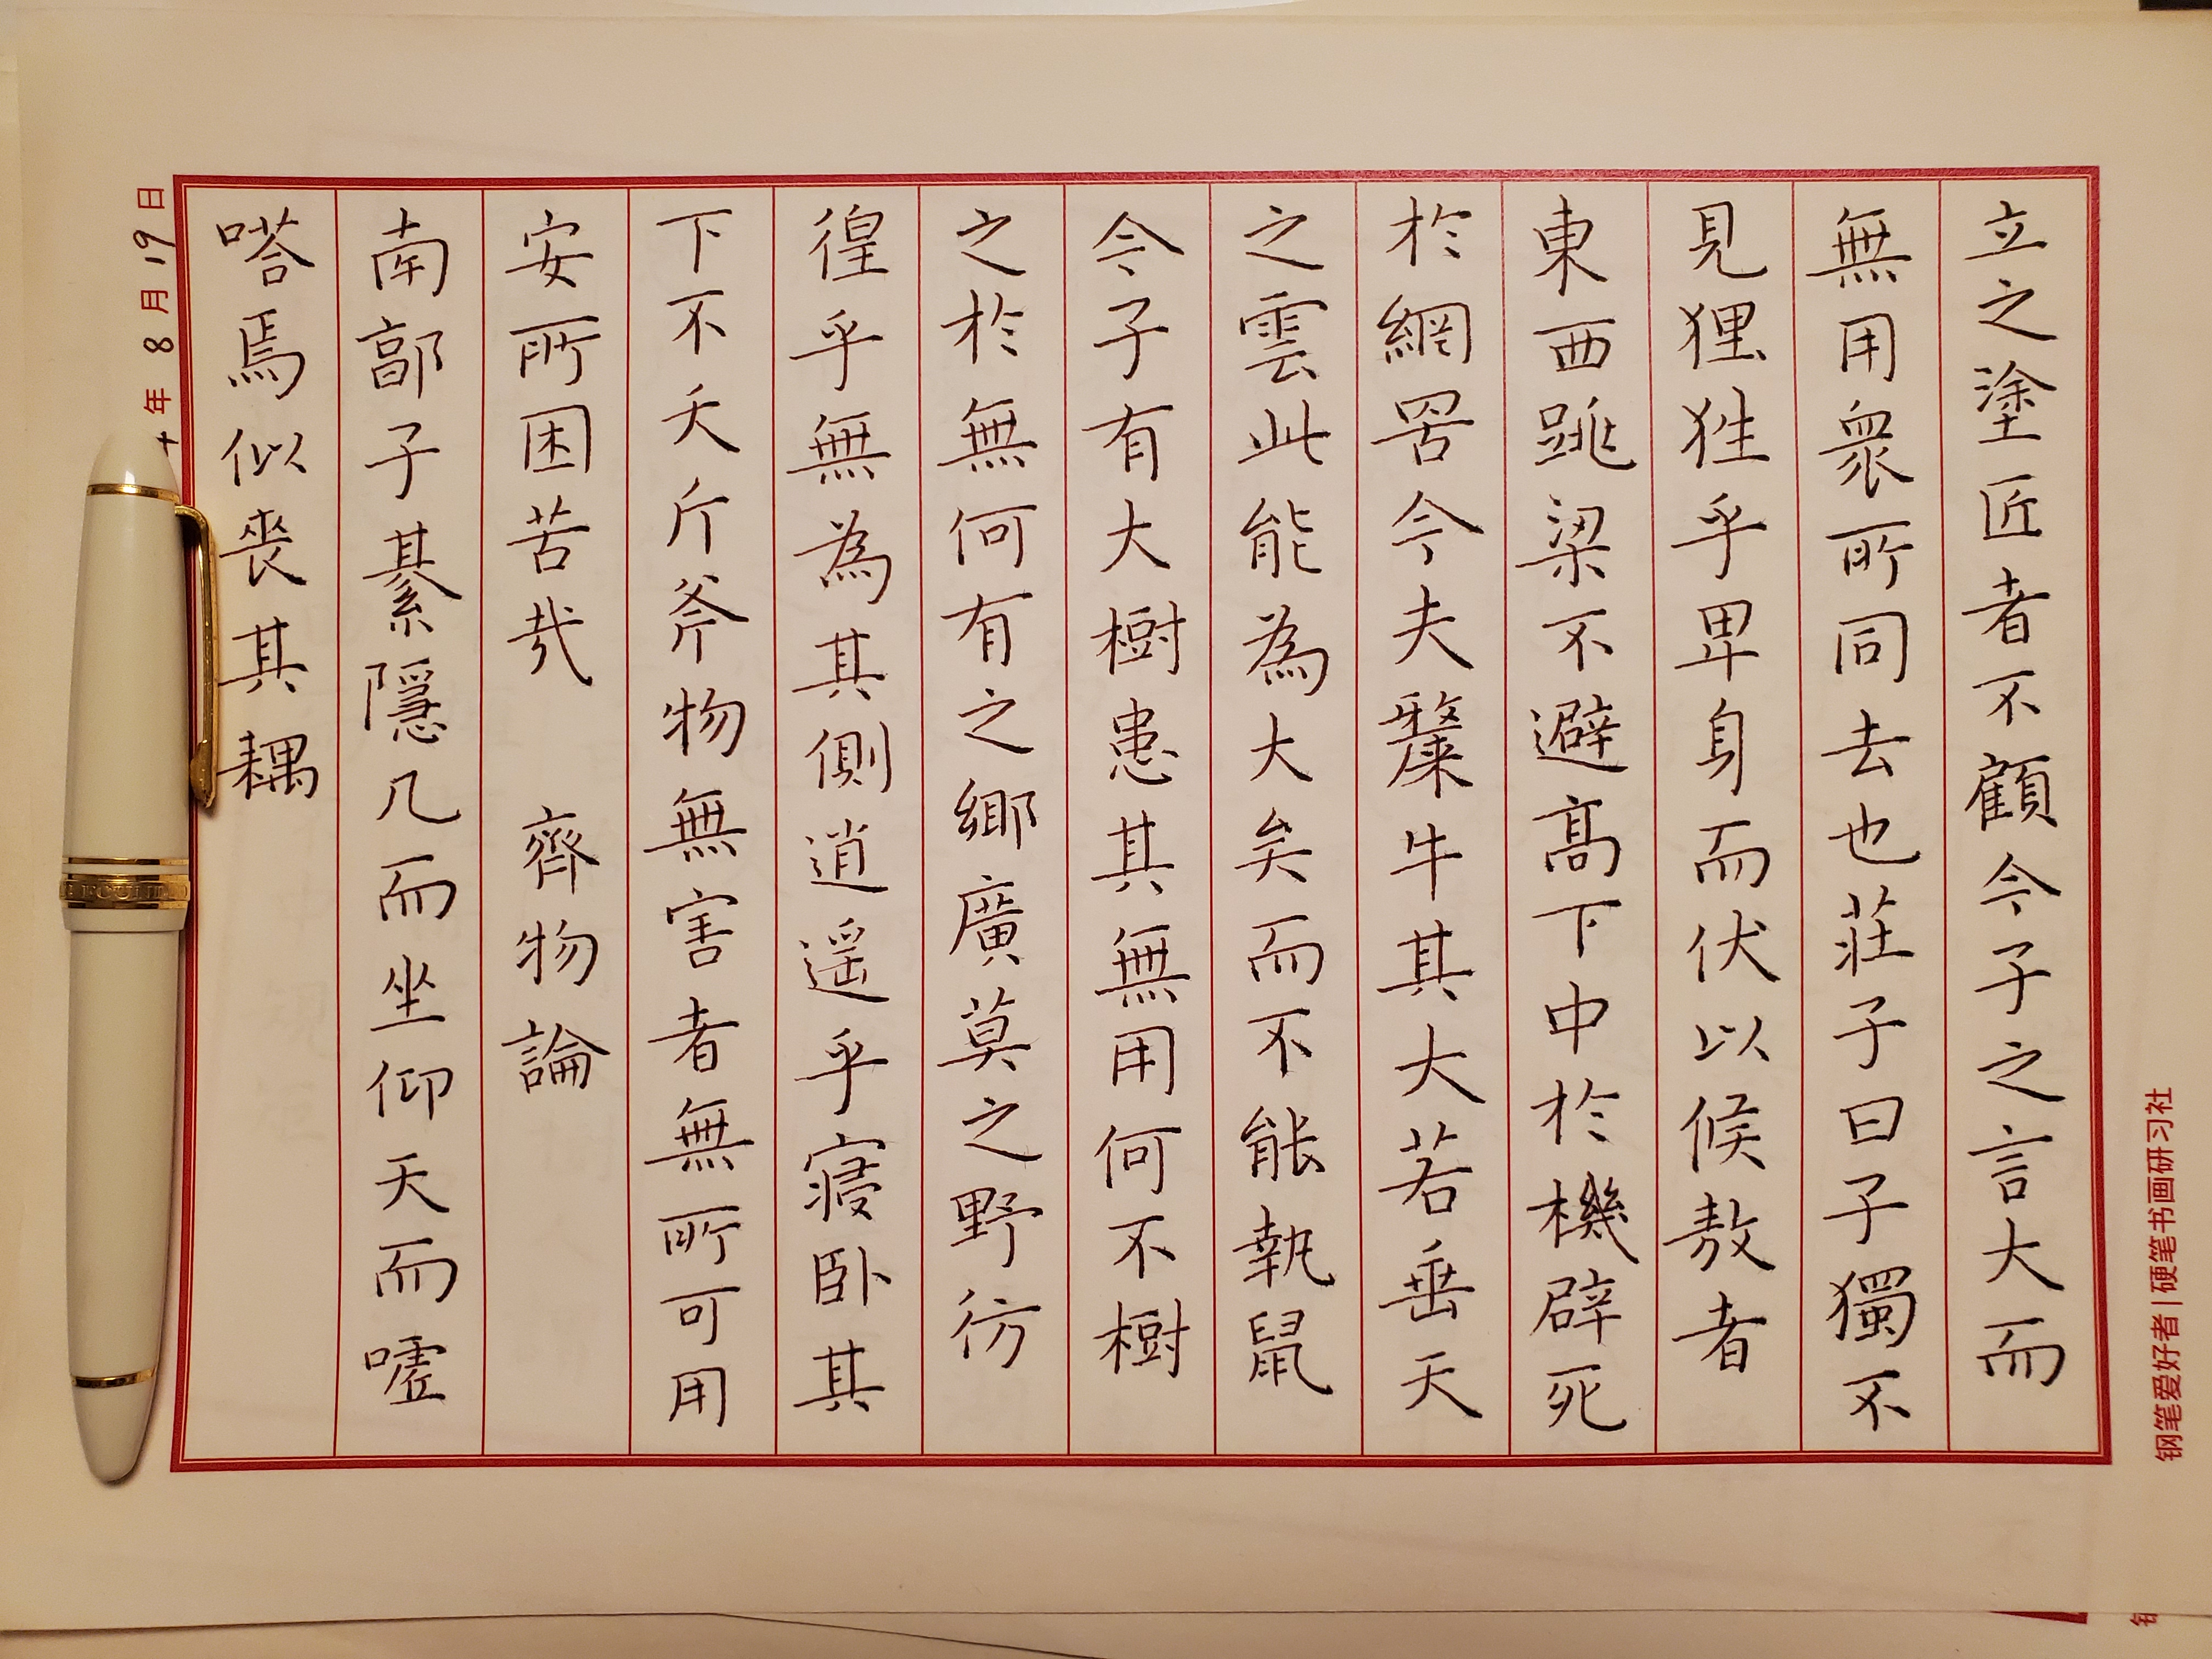 立之塗匠者不顧今子之言大而
無用衆所同去也莊子曰子獨不
見狸狌乎卑身而伏以候敖者
東西跳梁不避高下中於機辟死
於網罟今夫斄牛其大若垂天
之雲此能為大矣而不能執鼠
今子有大樹患其無用何不樹
之於無何有之鄉廣莫之野彷
徨乎無為其側逍遥乎寢卧其
下不夭斤斧物無害者無所可用
安所困苦哉 齊物論
南郭子綦隱几而坐仰天而噓
嗒焉似喪其耦
年 8 月 19 日
钢笔爱好者|硬笔书画研习社